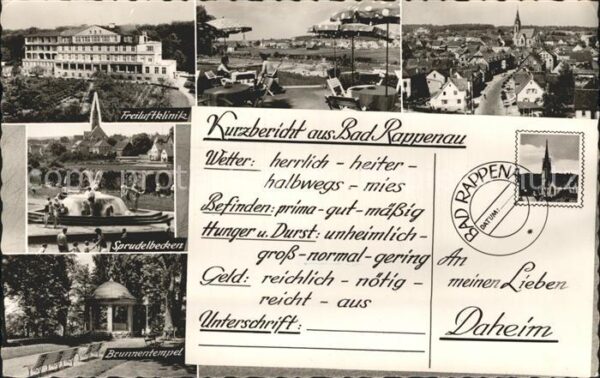 Freiluftklinik
Sprudelbecken
Brunnentempel
Kurzbericht aus Bad Rappenau
Wetter: herrlich - heiter -
halbwegs - mies
Befinden: prima - gut - mäßig
Hunger u. Durst: unheimlich -
groß - normal - gering
Geld: reichlich - nötig -
reicht - aus
Unterschrift:
BAD RAPPENAU
DATUM:
An
meinen Lieben
Daheim